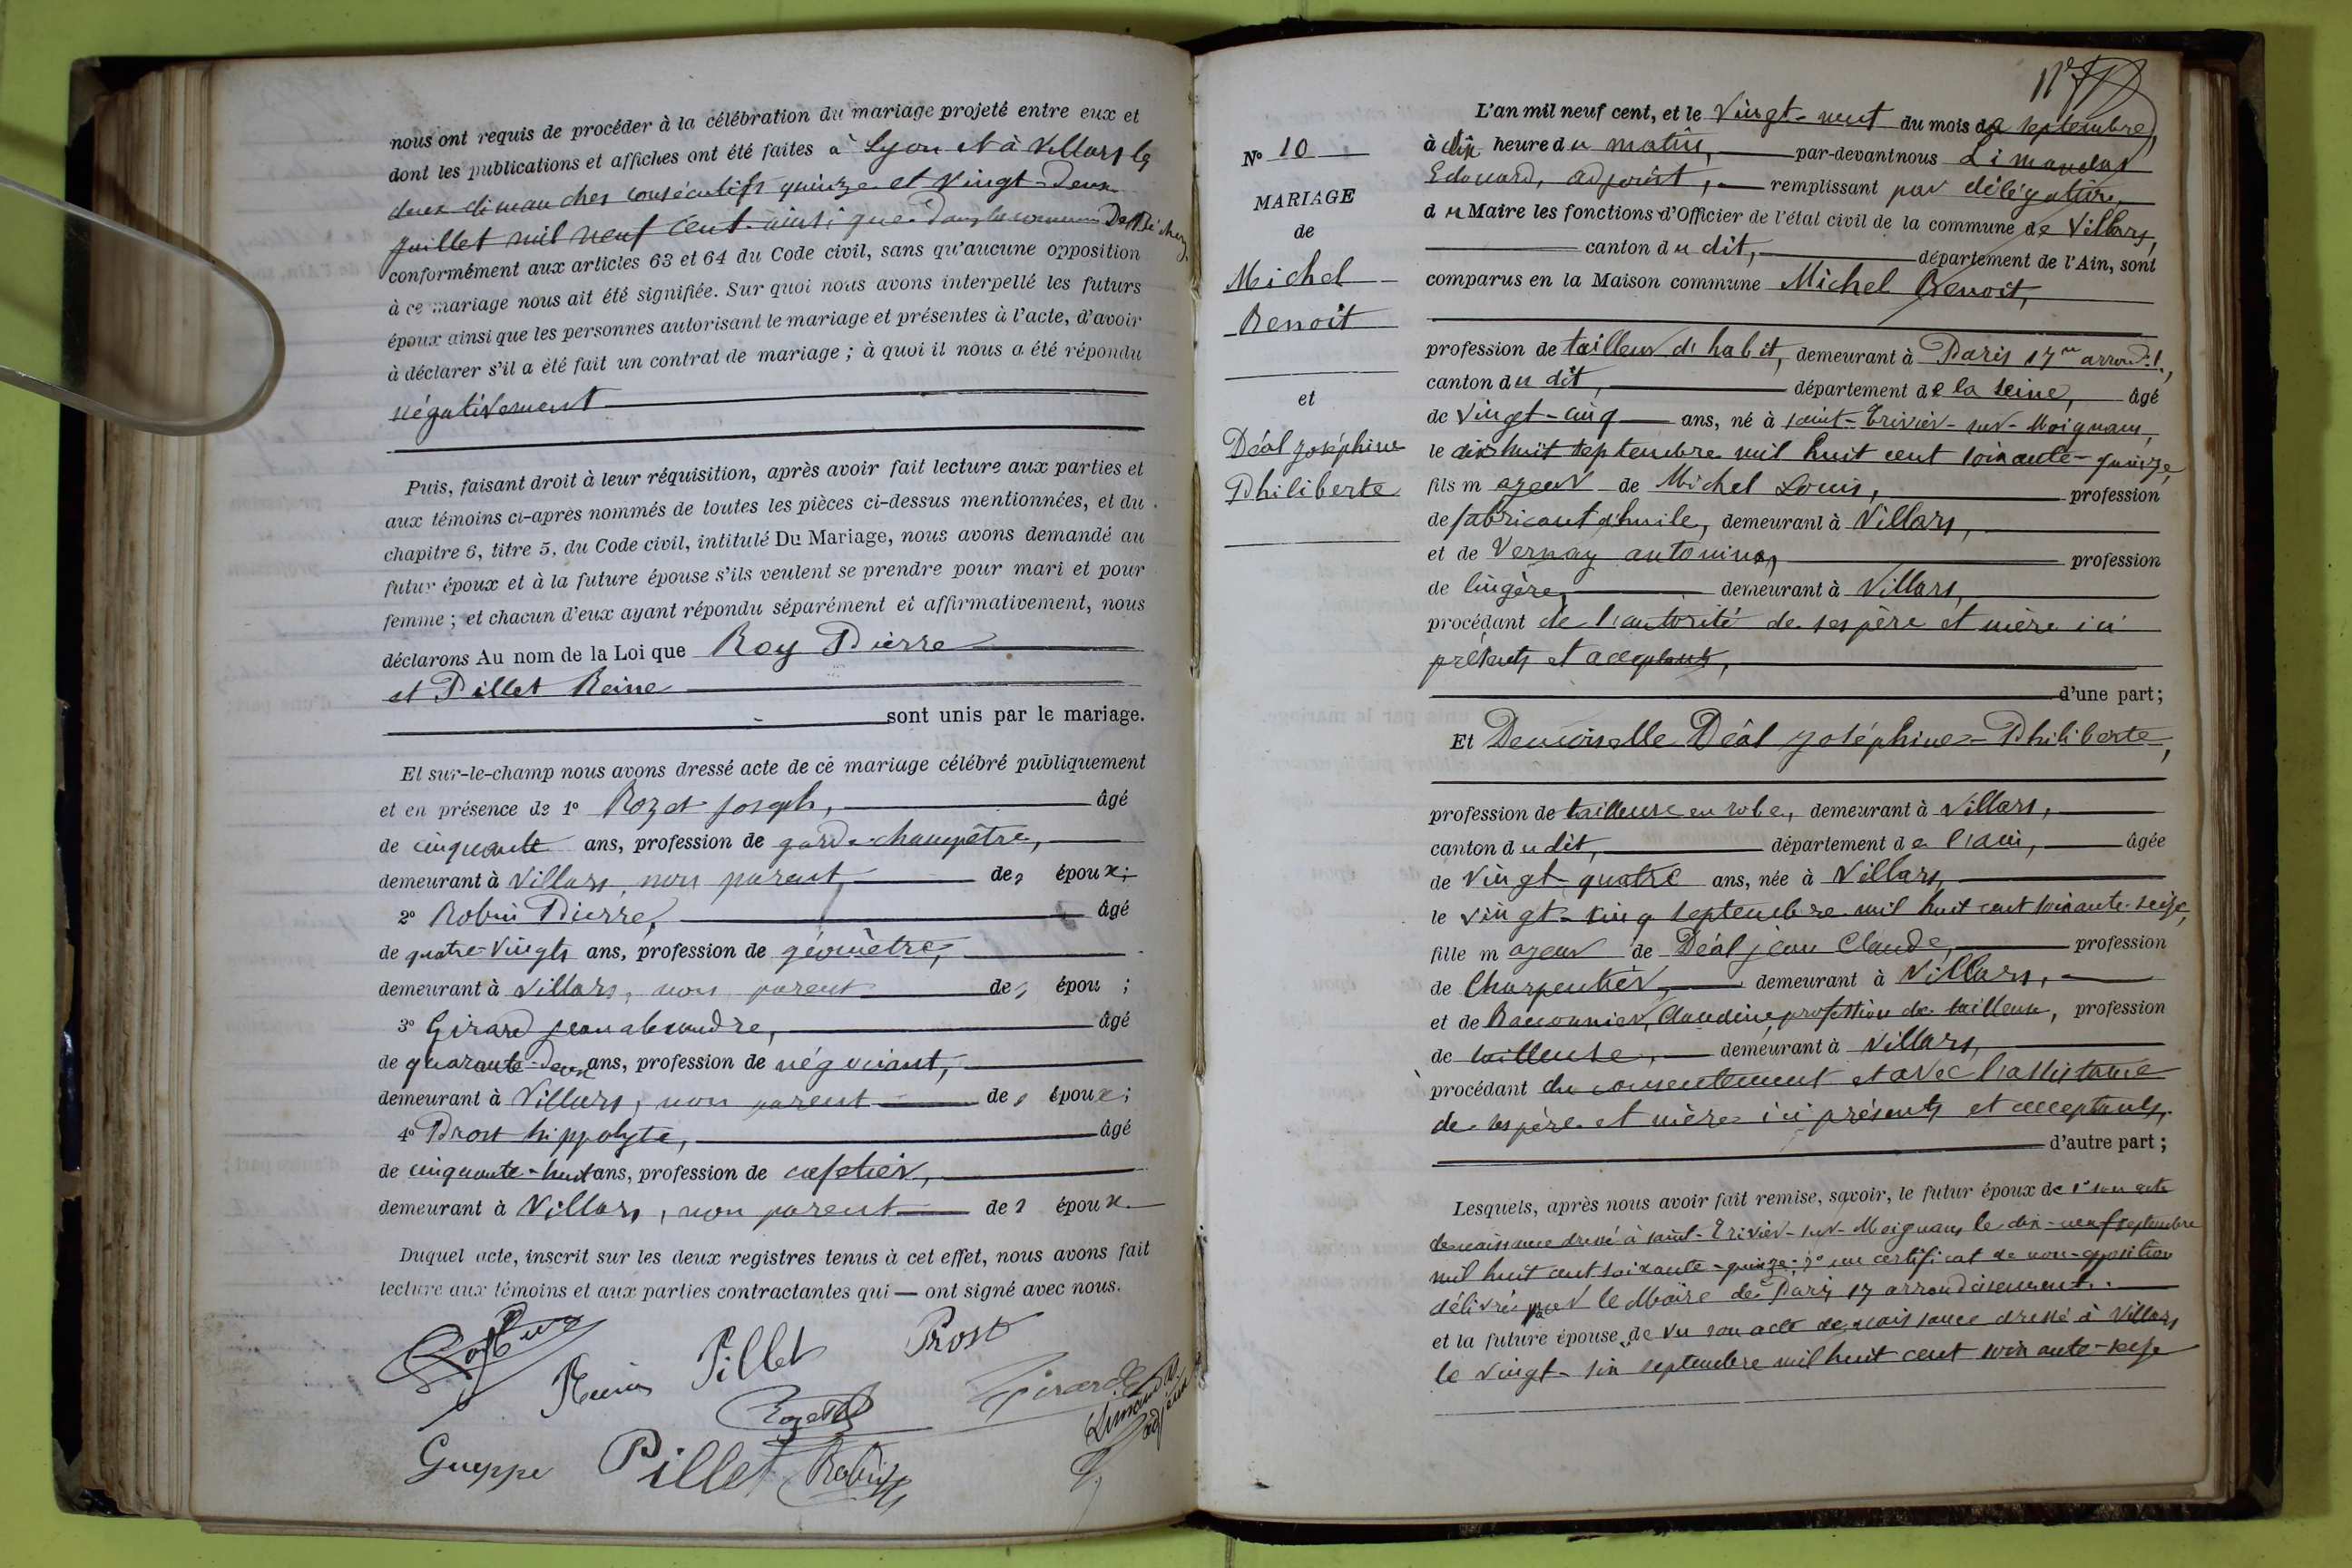 nous ont requis de procéder à la célébration du mariage projeté entre eux et
dont les publications et affiches ont été faites à Lyon et à Villars les
deux dimanches consécutifs quinze et vingt-deux
juillet mil neuf cent ainsi que dans les
conformément aux articles 63 et 64 du Code civil, sans qu'aucune opposition
à ce mariage nous ait été signifiée. Sur quoi nous avons interpellé les futurs
époux ainsi que les personnes autorisant le mariage et présentes à l'acte, d'avoir
à déclarer s'il a été fait un contrat de mariage ; à quoi il nous a été répondu
négativement
Puis, faisant droit à leur réquisition, après avoir fait lecture aux parties et
aux témoins ci-après nommés de toutes les pièces ci-dessus mentionnées, et du
chapitre 6, titre 5, du Code civil, intitulé Du Mariage, nous avons demandé au
futur époux et à la future épouse s'ils veulent se prendre pour mari et pour
femme ; et chacun d'eux ayant répondu séparément et affirmativement, nous
déclarons Au nom de la Loi que Roy Pierre
et Pillet Reine
sont unis par le mariage.
Et sur-le-champ nous avons dressé acte de ce mariage célébré publiquement
et en présence de 1° Rozet Joseph, âgé
de cinquante ans, profession de garde-champêtre,
demeurant à Villars, non parent des époux ;
2° Robin Pierre, âgé
de quatre-vingts ans, profession de géomètre,
demeurant à Villars, non parent des épou ;
3° Girard jean alexandre, âgé
de quarante-deux ans, profession de négociant,
demeurant à Villars, non parent des époux ;
4° Prost hippolyte, âgé
de cinquante-huit ans, profession de cafetier,
demeurant à Villars, non parent des époux.
Duquel acte, inscrit sur les deux registres tenus à cet effet, nous avons fait
lecture aux témoins et aux parties contractantes qui — ont signé avec nous.
Roy Pierre
Reine Pillet Prost
Rozet Girard
Gueppe Pillet Robin
N° 10
MARIAGE
de
Michel
Benoit
et
Déal Joséphine
Philiberte
L'an mil neuf cent, et le vingt-neuf du mois de septembre,
à dix heure du matin, par-devant nous Limandas
Edouard, adjoint, remplissant par délégation,
du Maire les fonctions d'Officier de l'état civil de la commune de Villars,
canton du dit, département de l'Ain, sont
comparus en la Maison commune Michel Benoit,
profession de tailleur d'habit, demeurant à Paris 17me arrondt.,
canton du dit, département de la Seine, âgé
de vingt-cinq ans, né à Saint-Trivier-sur-Moignans,
le dix huit septembre mil huit cent soixante-quinze,
fils majeur de Michel Louis, profession
de fabricant d'huile, demeurant à Villars,
et de Vernay antonine, profession
de lingère, demeurant à Villars,
procédant de l'autorité de ses père et mère ici
présents et acceptants,
d'une part ;
Et Demoiselle Déal Joséphine-Philiberte,
profession de tailleuse en robe, demeurant à Villars,
canton du dit, département de l'ain, âgée
de vingt-quatre ans, née à Villars,
le vingt-cinq septembre mil huit cent soixante-seize,
fille majeur de Déal jean Claude, profession
de Charpentier, demeurant à Villars,
et de Claudine, profession de tailleuse, profession
de tailleuse, demeurant à Villars,
procédant du consentement et avec l'assistance
de ses père et mère ici présents et acceptants,
d'autre part ;
Lesquels, après nous avoir fait remise, savoir, le futur époux de 1° son acte
de naissance dressé à saint-Trivier-sur-Moignans le dix-neuf septembre
mil huit cent soixante-quinze ; 2° un certificat de non-opposition
délivré par le Maire de Paris 17 arrondissement.
et la future épouse de vu son acte de naissance dressé à Villars
le vingt-six septembre mil huit cent soixante-seize